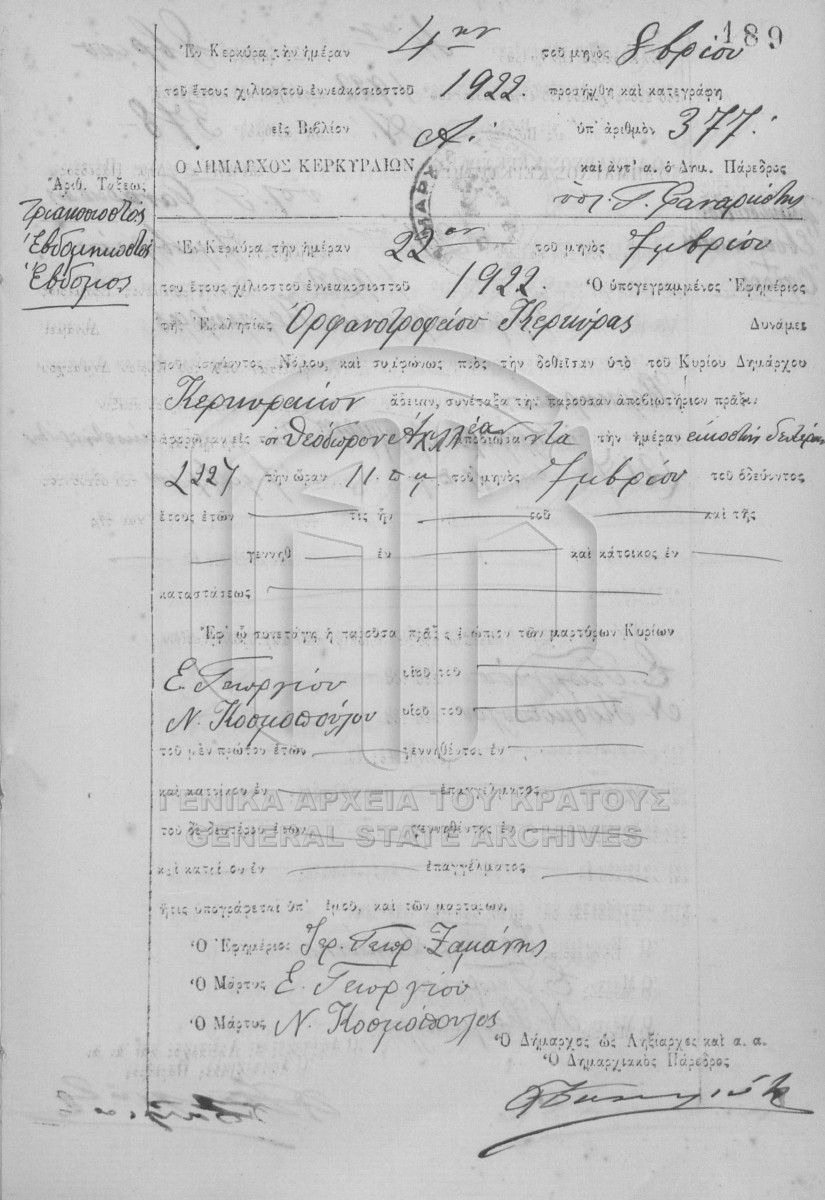 189
Ἐν Κερκύρᾳ τὴν ἡμέραν 4ην τοῦ μηνὸς 8βρίου
τοῦ ἔτους χιλιοστοῦ ἐννεακοσιοστοῦ 1922. προσήχθη καὶ κατεγράφη
εἰς Βιβλίον Α. ὑπ' ἀριθμὸν 377.
Ο ΔΗΜΑΡΧΟΣ ΚΕΡΚΥΡΑΙΩΝ καὶ ἀντ' α. ὁ Δημ. Πάρεδρος
ὑπ. Γ. Φαναριώτης
Ἀριθ. Τάξεως
Τριακοσιοστὸς
Ἑβδομηκοστὸς
Ἕβδομος
Ἐν Κερκύρᾳ τὴν ἡμέραν 22αν τοῦ μηνὸς 7μβρίου
του ἔτους χιλιοστοῦ ἐννεακοσιοστοῦ 1922. Ὁ ὑπογεγραμμένος Ἐφημέριος
τῆς Ἐκκλησίας Ὀρφανοτροφείου Κερκύρας Δυνάμει
τοῦ ἰσχύοντος Νόμου, καὶ συμφώνως πρὸς τὴν δοθεῖσαν ὑπὸ τοῦ Κυρίου Δημάρχου
Κερκυραίων ἄδειαν, συνέταξα τὴν παροῦσαν ἀποβιωτήριον πρᾶξιν
ἀφορῶσαν εἰς τὸν Θεόδωρον ἀποβιώσαντα τὴν ἡμέραν εἰκοστὴν δευτέραν
τὴν ὥραν 11 π μ τοῦ μηνὸς 7μβρίου τοῦ ὁδεύοντος
ἔτους ἐτῶν τις ἦν τοῦ καὶ τῆς
γεννηθ ἐν καὶ κάτοικος ἐν
καταστάσεως
Ἐφ' ᾧ συνετάγη ἡ παροῦσα πρᾶξις ἐνώπιον τῶν μαρτύρων Κυρίων
Ε. Γεωργίου υἱοῦ τοῦ
Ν. Κοσμοπούλου υἱοῦ τοῦ
τοῦ μὲν πρώτου ἐτῶν γεννηθέντος ἐν
καὶ κατοίκου ἐν ἐπαγγέλματος
ΓΕΝΙΚΑ ΑΡΧΕΙΑ ΤΟΥ ΚΡΑΤΟΥΣ
τοῦ δὲ δευτέρου ἐτῶν γεννηθέντος ἐν
GENERAL STATE ARCHIVES
καὶ κατοίκου ἐν ἐπαγγέλματος
ἥτις ὑπογράφεται ὑπ' ἐμοῦ, καὶ τῶν μαρτύρων.
Ὁ Ἐφημέριος Ἱερ. Γεωρ. Ζαμάνης
Ὁ Μάρτυς Ε. Γεωργίου
Ὁ Μάρτυς Ν. Κοσμόπουλος
Ὁ Δήμαρχος ὡς Ληξίαρχος καὶ α. α.
Ὁ Δημαρχιακὸς Πάρεδρος